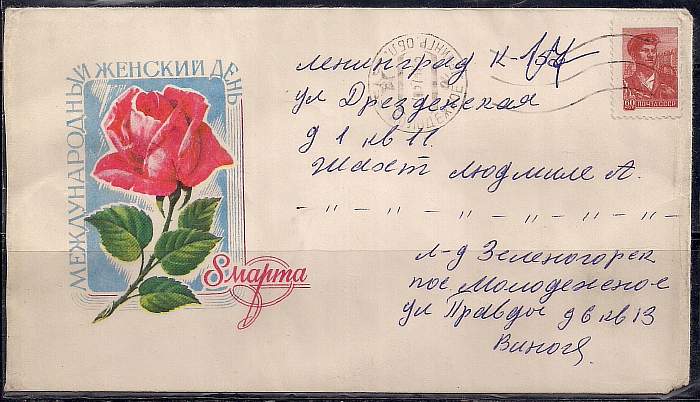 МЕЖДУНАРОДНЫЙ ЖЕНСКИЙ ДЕНЬ
8 марта
60 К ПОЧТА СССР
Ленинград К-
ул Дрезденская
д 1 кв 11.
Людмиле А.
— " — " — " — " — " — " —
Л-д Зеленогорск
пос Молодежное
ул Правды д 6 кв 13